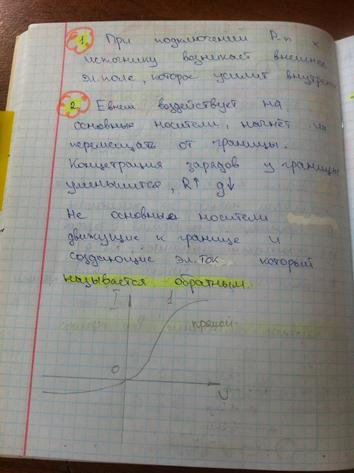 1. При подключении Rн к
источнику возникает внешнее
эл.поле, которое усилит внутрен
2. Евнеш воздействует на
основные носители, начнёт их
перемещать от границы.
Концетрация зарядов у границы
уменьшится, R↑ g↓
Не основные носители
движущие к границе и
создающие эл.ток который
называется обратным.
I 1
прямой
0
U